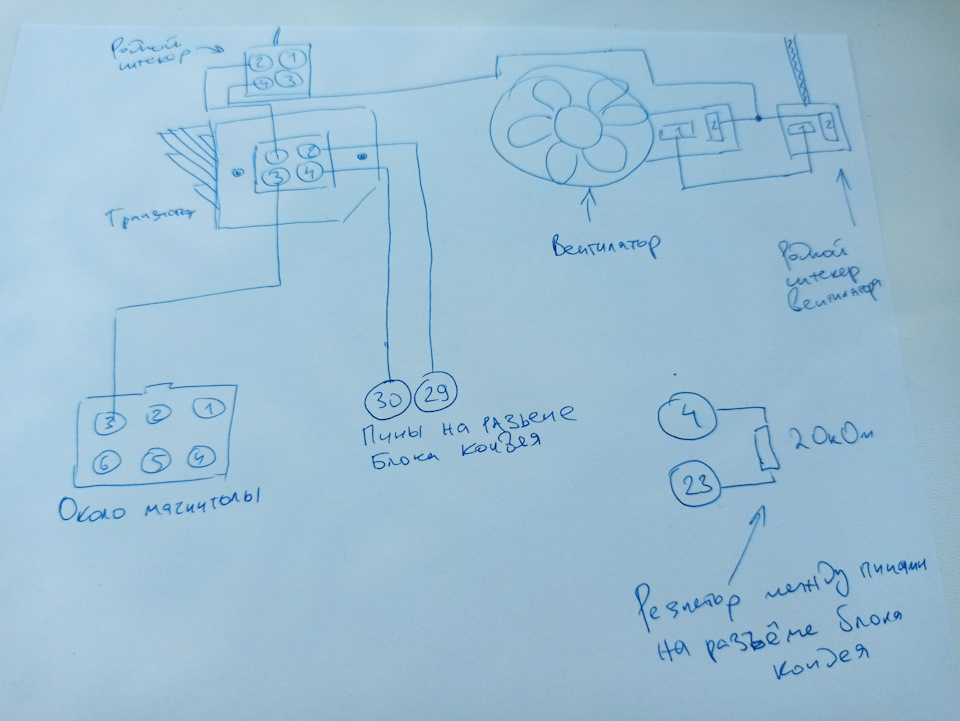 Родной
штекер
2 1
4 3
1 2
3 4
Транзистор
1 2
1 2
Вентилятор
Родной
штекер
вентилятора
3 2 1
6 5 4
Около магнитолы
30 29
Пины на разьеме
блока кондея
4
23
20кОм
Резистор между пинами
на разъёме блока
кондея